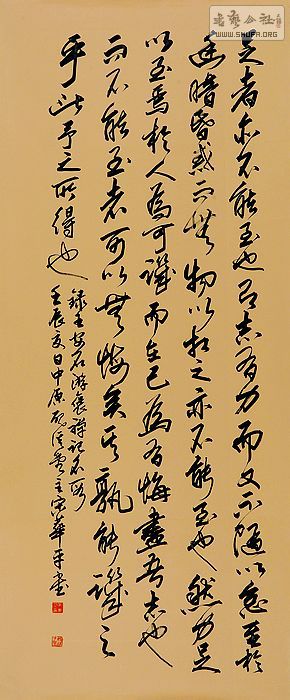 書藝公社
WWW.SHUFA.ORG
足者亦不能至也有志與力而又不随以怠至於
幽暗昏惑而無物以相之亦不能至也然力足
以至焉於人為可譏而在己為有悔盡吾志也
而不能至者可以無悔矣其孰能譏之
乎此予之所得也
錄王安石游褒禪記
壬辰夏日中原主宋華平書